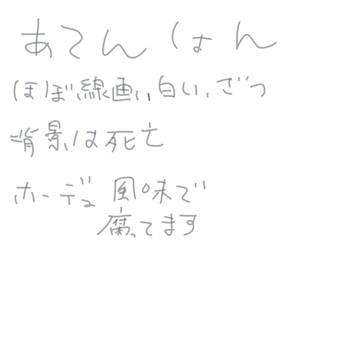 あてんしょん
ほぼ線画、白い、ざつ
背景は死亡
ホーデュ風味で
腐ってます